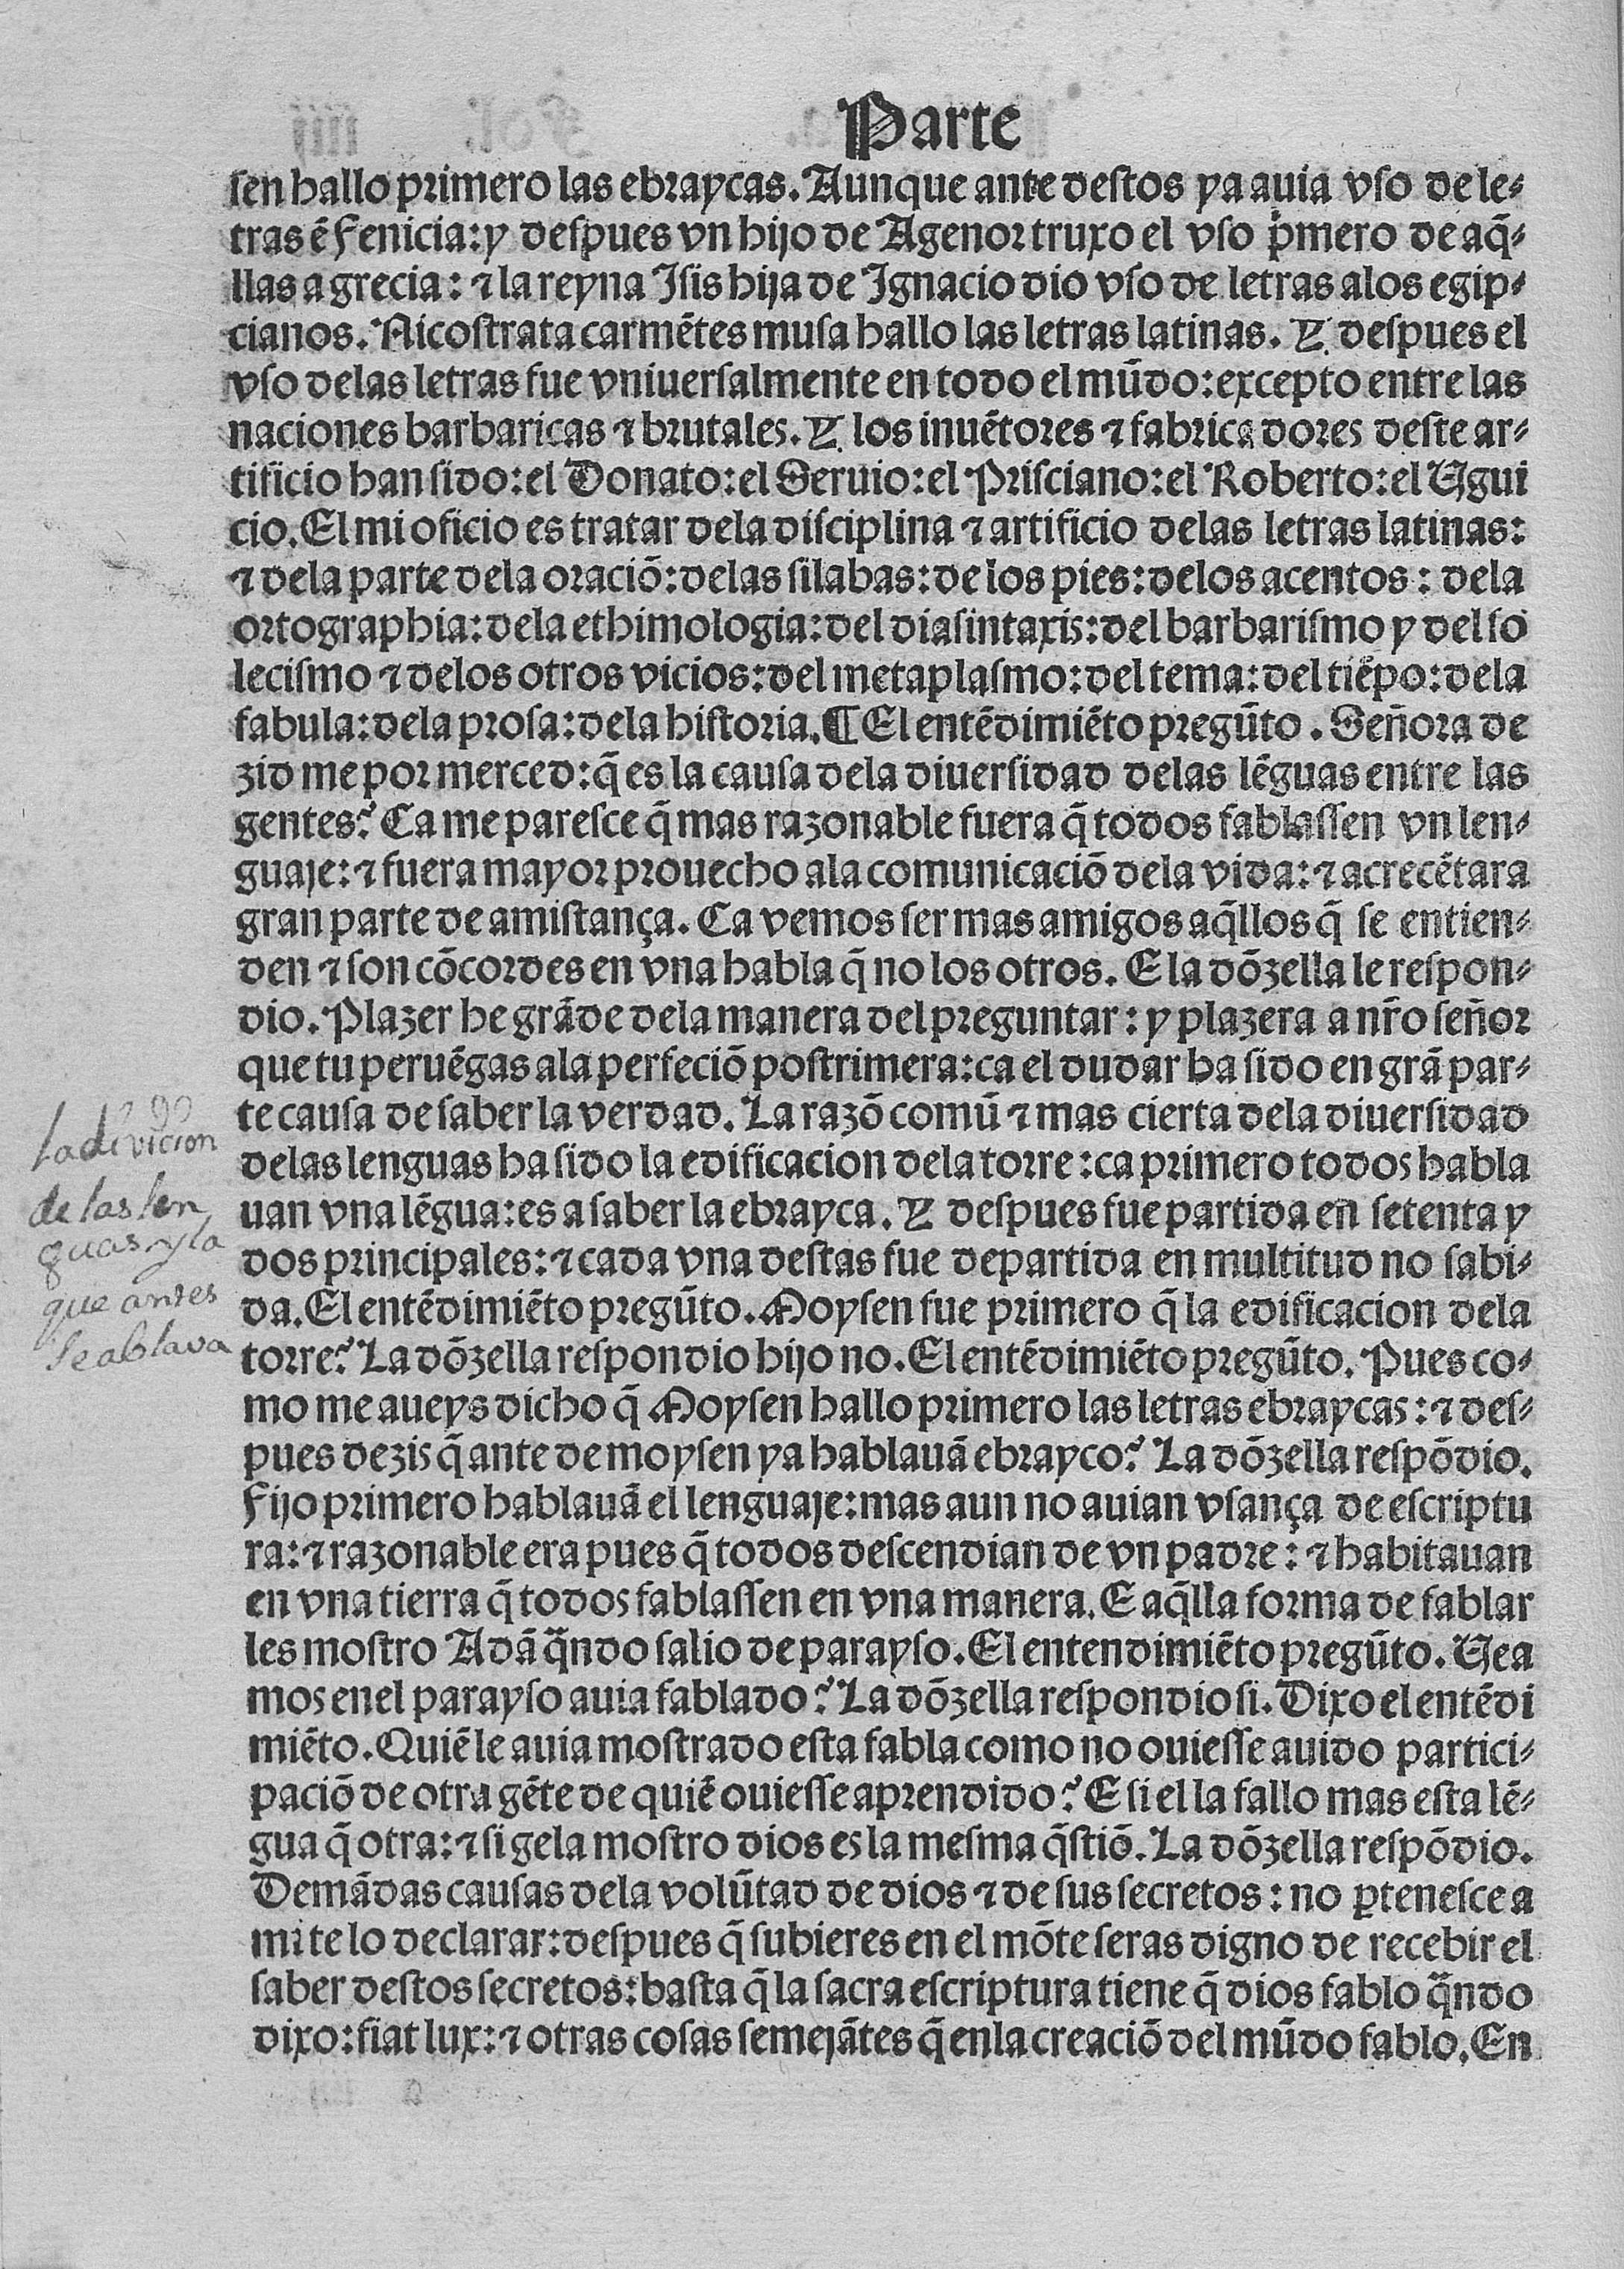 Parte
sen hallo primero las ebraycas. Aunque ante destos ya auia vso de le-
tras ē fenicia: y despues vn hijo de Agenor truxo el vso pͥmero de aq̄-
llas a grecia: ⁊ la reyna Isis hija de Ignacio dio vso de letras alos egip-
cianos. Nicostrata carmētes musa hallo las letras latinas. Y despues el
vso delas letras fue vniuersalmente en todo el mūdo: excepto entre las
naciones barbaricas ⁊ brutales. Y los inuētores ⁊ fabricadores deste ar-
tificio han sido: el Donato: el Seruio: el Prisciano: el Roberto: el Ugui
cio. El mi oficio es tratar dela disciplina ⁊ artificio delas letras latinas:
⁊ dela parte dela oraciō: delas silabas: de los pies: delos acentos: dela
ortographia: dela ethimologia: del diasintaxis: del barbarismo y del so
lecismo ⁊ delos otros vicios: del metaplasmo: del tema: del tiēpo: dela
fabula: dela prosa: dela historia. ¶ El entēdimiēto pregūto. Señora de
zid me por merced: q̄ es la causa dela diuersidad delas lēguas entre las
gentes? Ca me paresce q̄ mas razonable fuera q̄ todos fablassen vn len-
guaje: ⁊ fuera mayor prouecho ala comunicaciō dela vida: ⁊ acrecētara
gran parte de amistança. Ca vemos ser mas amigos aq̄llos q̄ se entien-
den ⁊ son cōcordes en vna habla q̄ no los otros. E la dōzella le respon-
dio. Plazer he grāde dela manera del preguntar: y plazera a nr̄o señor
que tu peruēgas ala perfeciō postrimera: ca el dudar ha sido en grā par-
te causa de saber la verdad. La razō comū ⁊ mas cierta dela diuersidad
delas lenguas ha sido la edificacion dela torre: ca primero todos habla
uan vna lēgua: es a saber la ebrayca. Y despues fue partida en setenta y
dos principales: ⁊ cada vna destas fue departida en multitud no sabi-
da. El entēdimiēto pregūto. Moysen fue primero q̄ la edificacion dela
torre? La dōzella respondio hijo no. El entēdimiēto pregūto. Pues co-
mo me aueys dicho q̄ Moysen hallo primero las letras ebraycas: ⁊ des-
pues dezis q̄ ante de moysen ya hablauā ebrayco? La dōzella respōdio.
Fijo primero hablauā el lenguaje: mas aun no auian vsança de escriptu
ra: ⁊ razonable era pues q̄ todos descendian de vn padre: ⁊ habitauan
en vna tierra q̄ todos fablassen en vna manera. E aq̄lla forma de fablar
les mostro Adā q̄ndo salio de parayso. El entendimiēto pregūto. Uea
mos enel parayso auia fablado? La dōzella respondio si. Dixo el entēdi
miēto. Quiē le auia mostrado esta fabla como no ouiesse auido partici-
paciō de otra gēte de quiē ouiesse aprendido? E si el la fallo mas esta lē-
gua q̄ otra: ⁊ si gela mostro dios es la mesma q̄stiō. La dōzella respōdio.
Demādas causas dela volūtad de dios ⁊ de sus secretos: no ꝑtenesce a
mi te lo declarar: despues q̄ subieres en el mōte seras digno de recebir el
saber destos secretos: basta q̄ la sacra escriptura tiene q̄ dios fablo q̄ndo
dixo: fiat lux: ⁊ otras cosas semejātes q̄ enla creaciō del mūdo fablo. En
la divicion
de las len
guas y la
que antes
se ablava